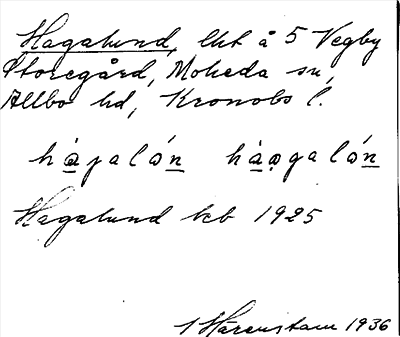 Hagalund, lht å 5 Vegby
Storegård, Moheda sn,
Allbo hd, Kronobs l.
hagalón haogalón
Hagalund kb 1925
1 Hårenstam 1936